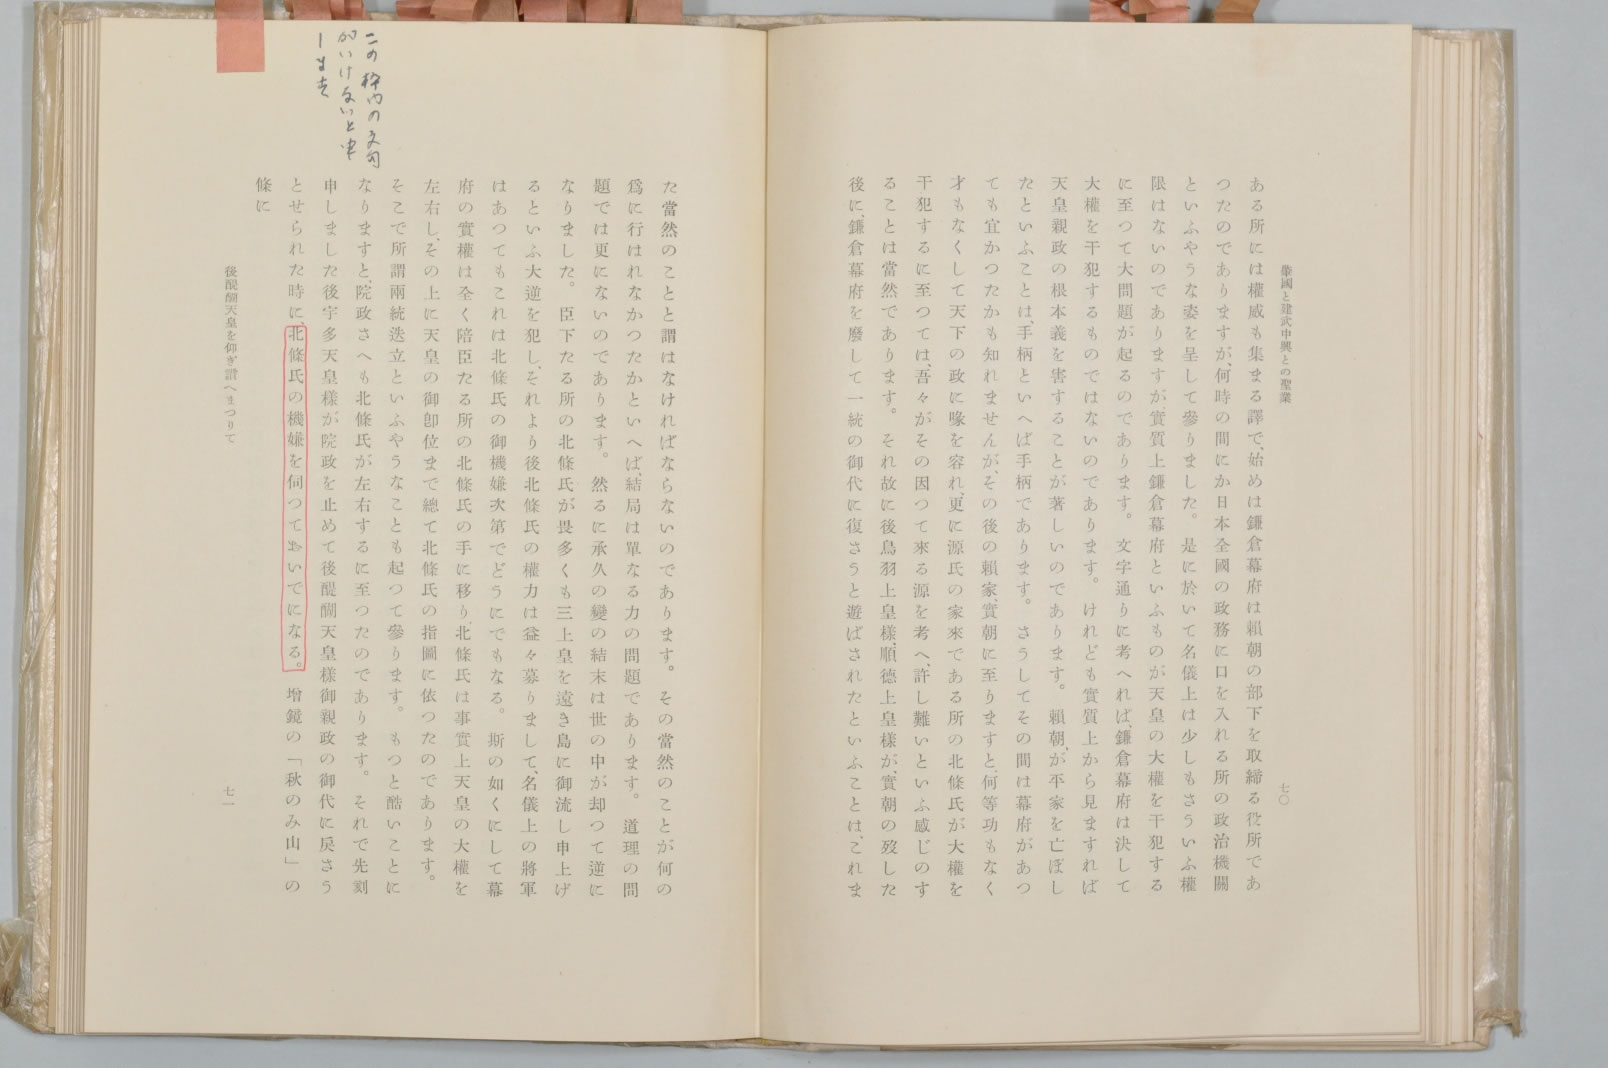 肇國と建武中興との聖業
七〇
ある所には權威も集まる譯で、始めは鎌倉幕府は賴朝の部下を取締る役所であ
つたのでありますが、何時の間にか日本全國の政務に口を入れる所の政治機關
といふやうな姿を呈して參りました。是に於いて名儀上は少しもさういふ權
限はないのでありますが、實質上鎌倉幕府といふものが天皇の大權を干犯する
に至つて大問題が起るのであります。文字通りに考へれば、鎌倉幕府は決して
大權を干犯するものではないのであります。けれども實質上から見ますれば
天皇親政の根本義を害することが著しいのであります。賴朝が平家を亡ぼし
たといふことは、手柄といへば手柄であります。さうしてその間は幕府があつ
ても宜かつたかも知れませんが、その後の賴家、實朝に至りますと、何等功もなく
才もなくして天下の政に喙を容れ、更に源氏の家來である所の北條氏が大權を
干犯するに至つては、吾々がその因つて來る源を考へ、許し難いといふ感じのす
ることは當然であります。それ故に後鳥羽上皇樣、順德上皇樣が、實朝の歿した
後に、鎌倉幕府を廢して一統の御代に復さうと遊ばされたといふことは、これま
た當然のことと謂はなければならないのであります。その當然のことが何の
爲に行はれなかつたかといへば、結局は單なる力の問題であります。道理の問
題では更にないのであります。然るに承久の變の結末は世の中が却つて逆に
なりました。臣下たる所の北條氏が畏多くも三上皇を遠き島に御流し申上げ
るといふ大逆を犯し、それより後北條氏の權力は益々募りまして、名儀上の將軍
はあつてもこれは北條氏の御機嫌次第でどうにでもなる。斯の如くにして幕
府の實權は全く陪臣たる所の北條氏の手に移り、北條氏は事實上天皇の大權を
左右し、その上に天皇の御卽位まで總て北條氏の指圖に依つたのであります。
そこで所謂兩統迭立といふやうなことも起つて參ります。もつと酷いことに
なりますと、院政さへも北條氏が左右するに至つたのであります。それで先刻
申しました後宇多天皇樣が院政を止めて後醍醐天皇樣御親政の御代に戾さう
とせられた時に、北條氏の機嫌を伺つておいでになる。增鏡の「秋のみ山」の
條に
後醍醐天皇を仰ぎ讃へまつりて
七一
この枠内の文句
がいけないと申
します